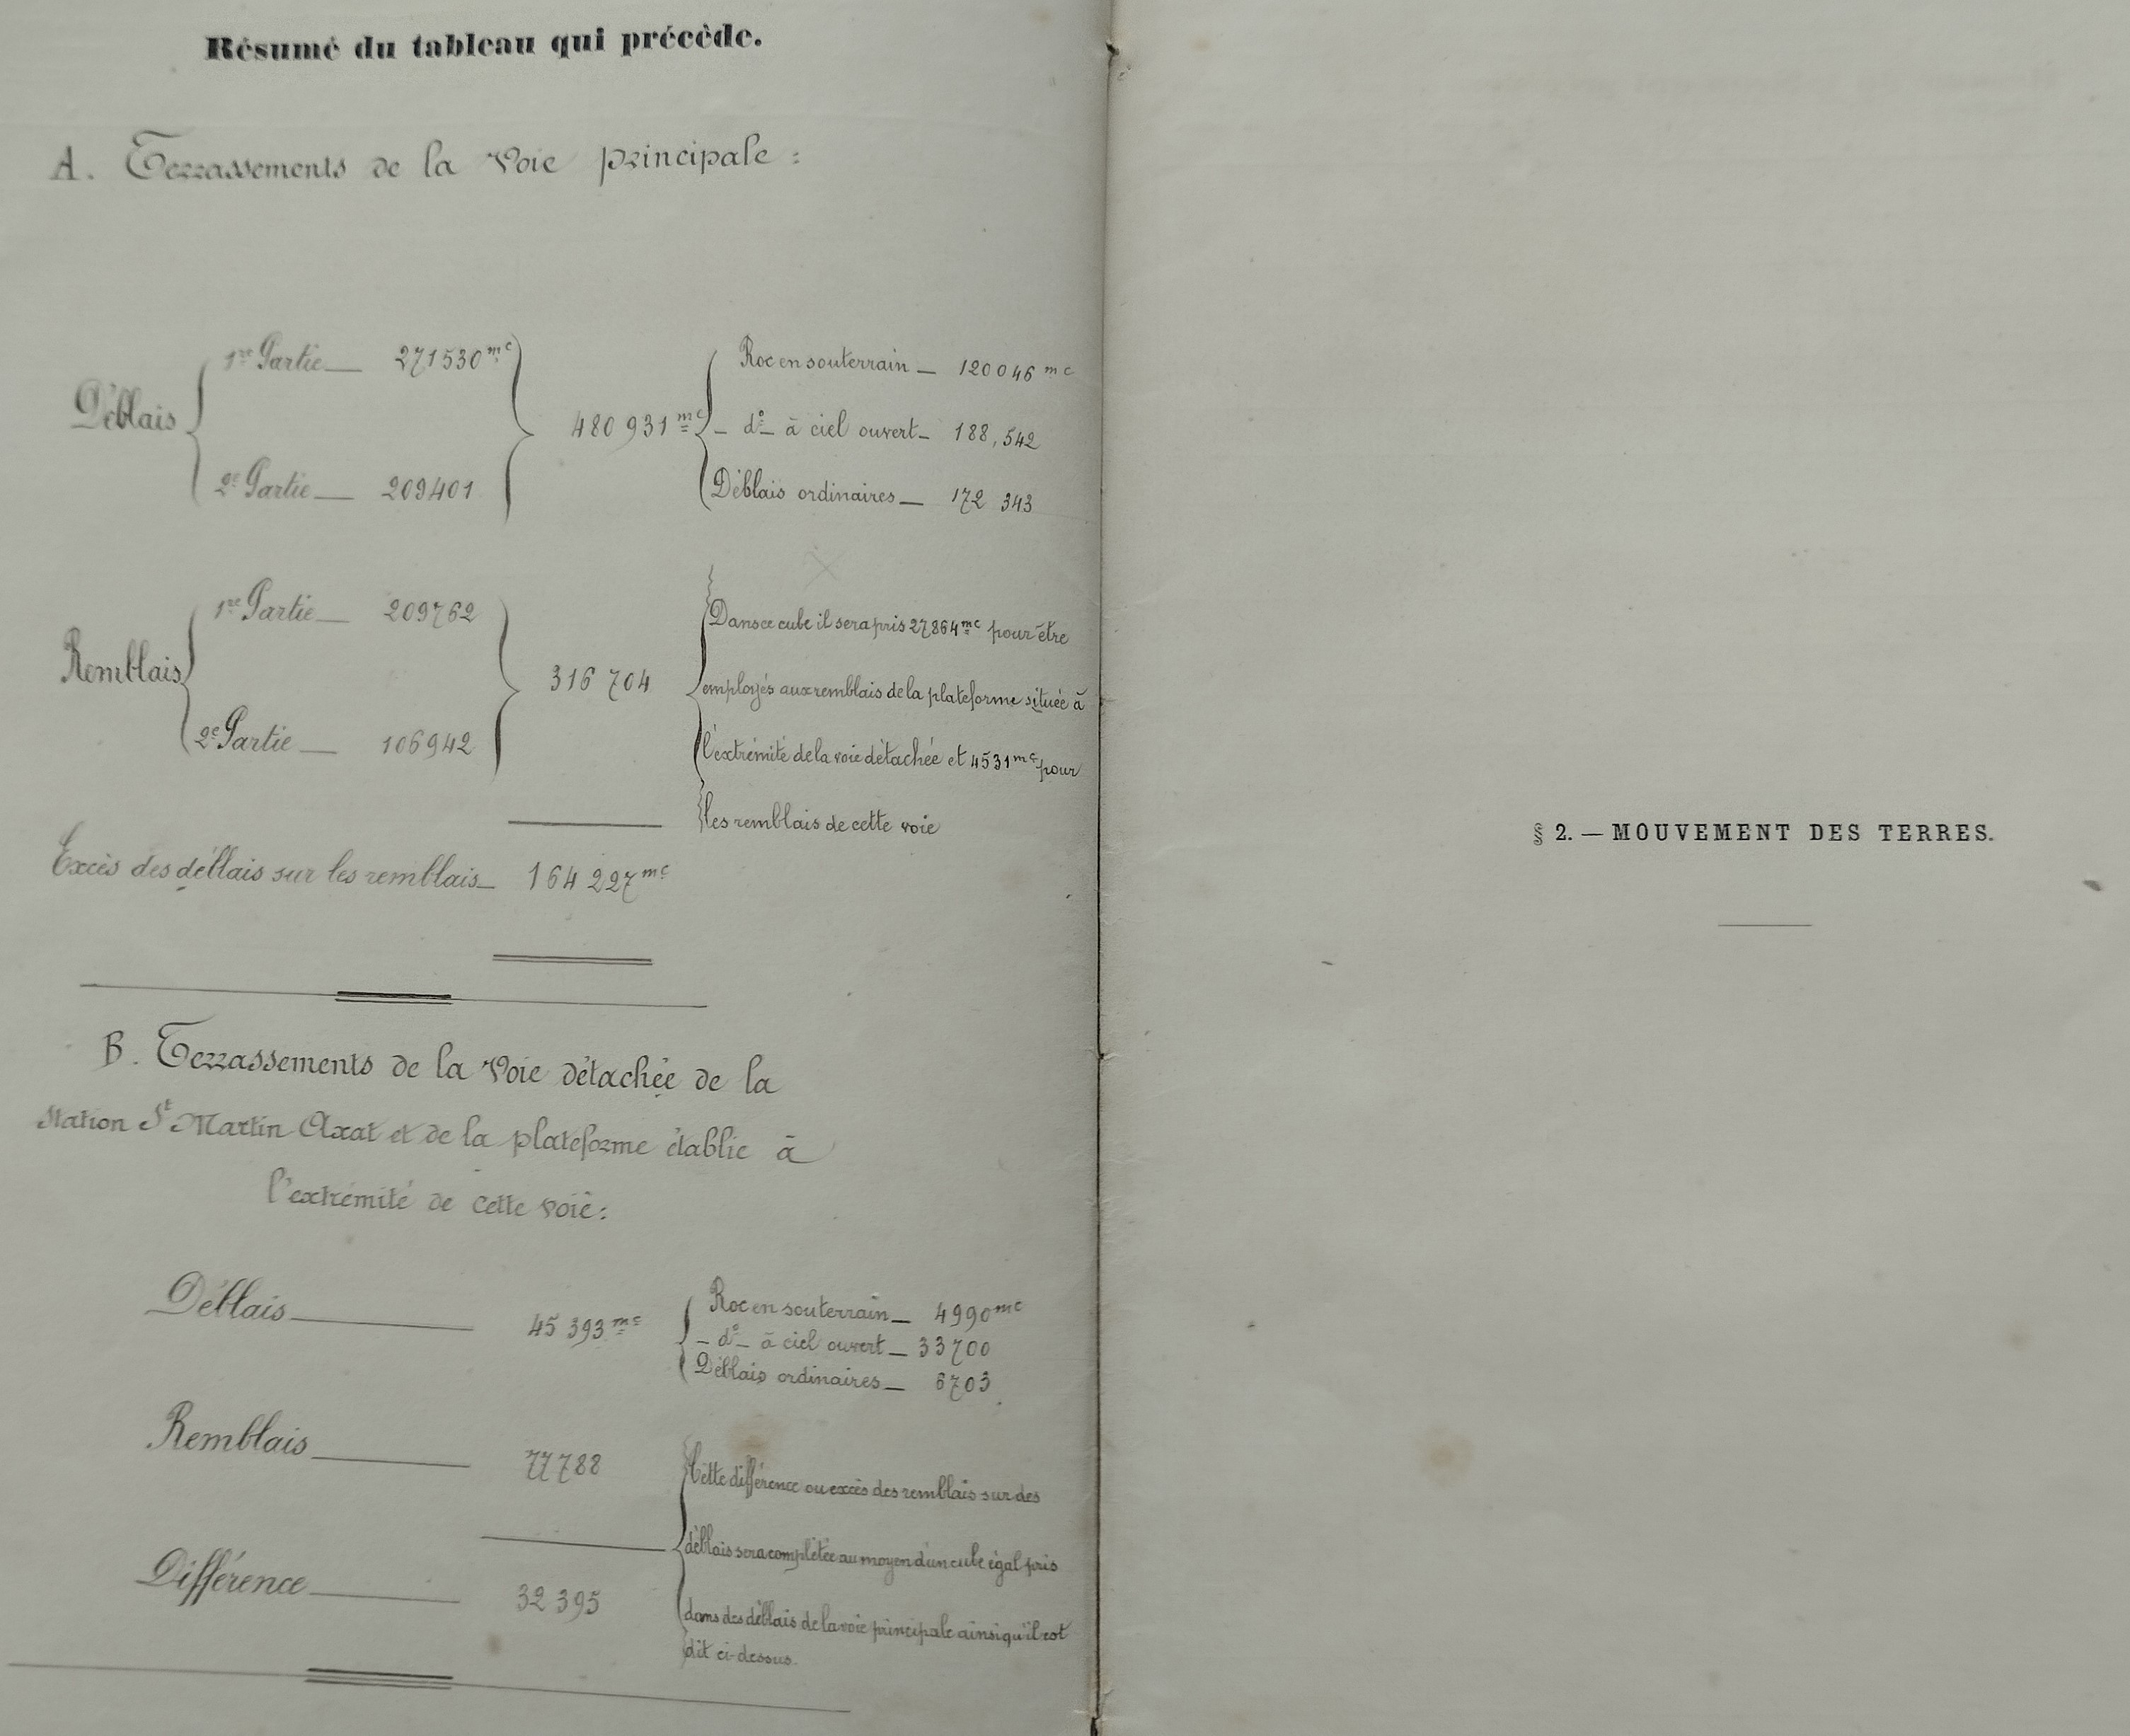 Résumé du tableau qui précède.
A. Terrassements de la Voie principale :
Déblais
1re Partie — 271530 mc
2e Partie — 209401
480 931 mc
Roc en souterrain — 120046 mc
— do — à ciel ouvert — 188,542
Déblais ordinaires — 172 343
Remblais
1re Partie — 209762
2e Partie — 106942
316 704
Dans ce cube il sera pris 27864 mc pour être
employés aux remblais de la plateforme située à
l'extrémité de la voie détachée et 4531 mc pour
les remblais de cette voie
Excès des déblais sur les remblais — 164 227 mc
B. Terrassements de la Voie détachée de la
Station St Martin Axat et de la plateforme établie à
l'extrémité de cette voie :
Déblais — 45 393 mc
Roc en souterrain — 4990 mc
— do — à ciel ouvert — 33700
Déblais ordinaires — 6703
Remblais — 77788
Différence — 32 395
Cette différence ou excès des remblais sur des
déblais sera complétée au moyen d'un cube égal pris
dans des déblais de la voie principale ainsi qu'il est
dit ci-dessus.
§ 2. — MOUVEMENT DES TERRES.